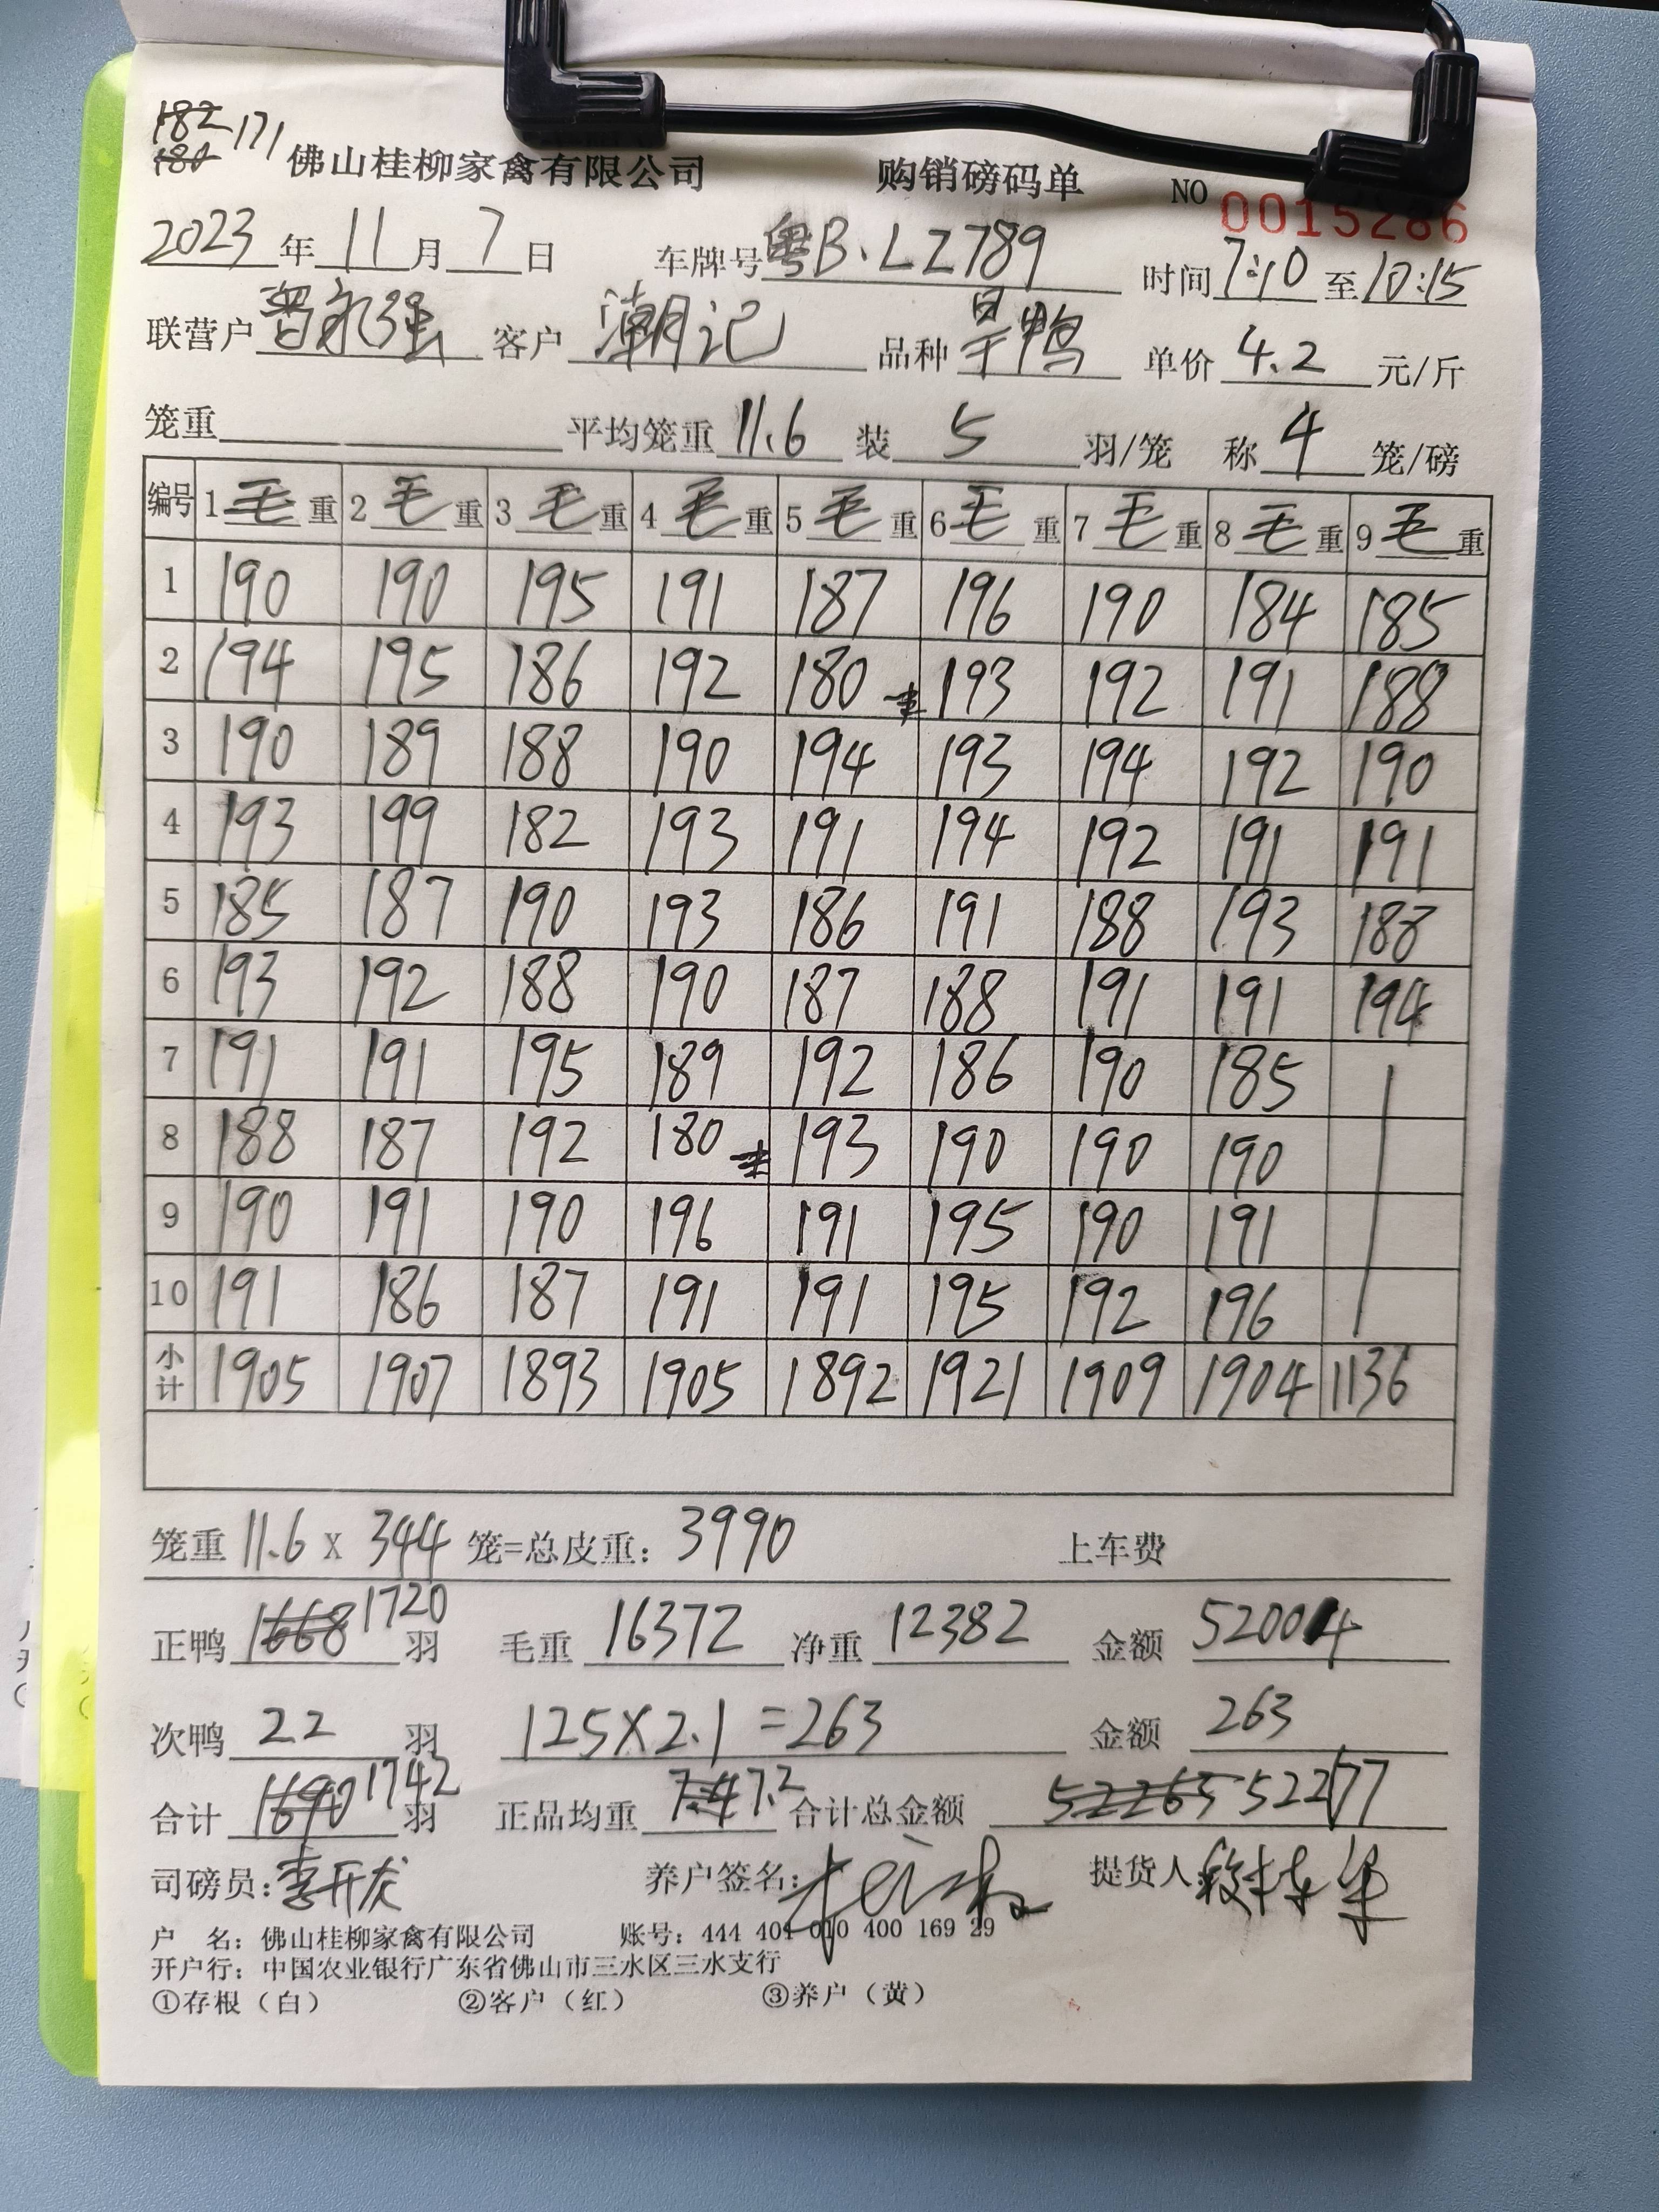 182 171
180
佛山桂柳家禽有限公司 购销磅码单 NO 0015286
2023年11月7日 车牌号粤B·LZ789 时间7:10至10:15
联营户 永强 客户 潮记 品种 旱鸭 单价 4.2 元/斤
笼重 平均笼重 11.6 装 5 羽/笼 称 4 笼/磅
编号 1毛重 2毛重 3毛重 4毛重 5毛重 6毛重 7毛重 8毛重 9毛重
1 190 190 195 191 187 196 190 184 185
2 194 195 186 192 180 193 192 191 188
3 190 189 188 190 194 193 194 192 190
4 193 199 182 193 191 194 192 191 191
5 185 187 190 193 186 191 188 193 188
6 193 192 188 190 187 188 191 191 194
7 191 191 195 189 192 186 190 185
8 188 187 192 180 193 190 190 190
9 190 191 190 196 191 195 190 191
10 191 186 187 191 191 195 192 196
小计 1905 1907 1893 1905 1892 1921 1909 1904 1136
笼重 11.6 x 344 笼=总皮重: 3990 上车费
正鸭 1668 1720 羽 毛重 16372 净重 12382 金额 52004
次鸭 22 羽 125×2.1=263 金额 263
合计 1690 1742 羽 正品均重 7.4 7.2 合计总金额 52265 52277
司磅员:李开庆 养户签名: 提货人
户 名: 佛山桂柳家禽有限公司 账号: 444 401 010 400 169 29
开户行: 中国农业银行广东省佛山市三水区三水支行
①存根（白） ②客户（红） ③养户（黄）